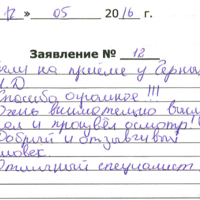 12 » 05 2016 г.
Заявление № 12
на приёме у
Спасибо огромное !!!
Очень внимательно
и произвёл осмотр!
Добрый и отзывчивый
ловек.
Отличный специалист